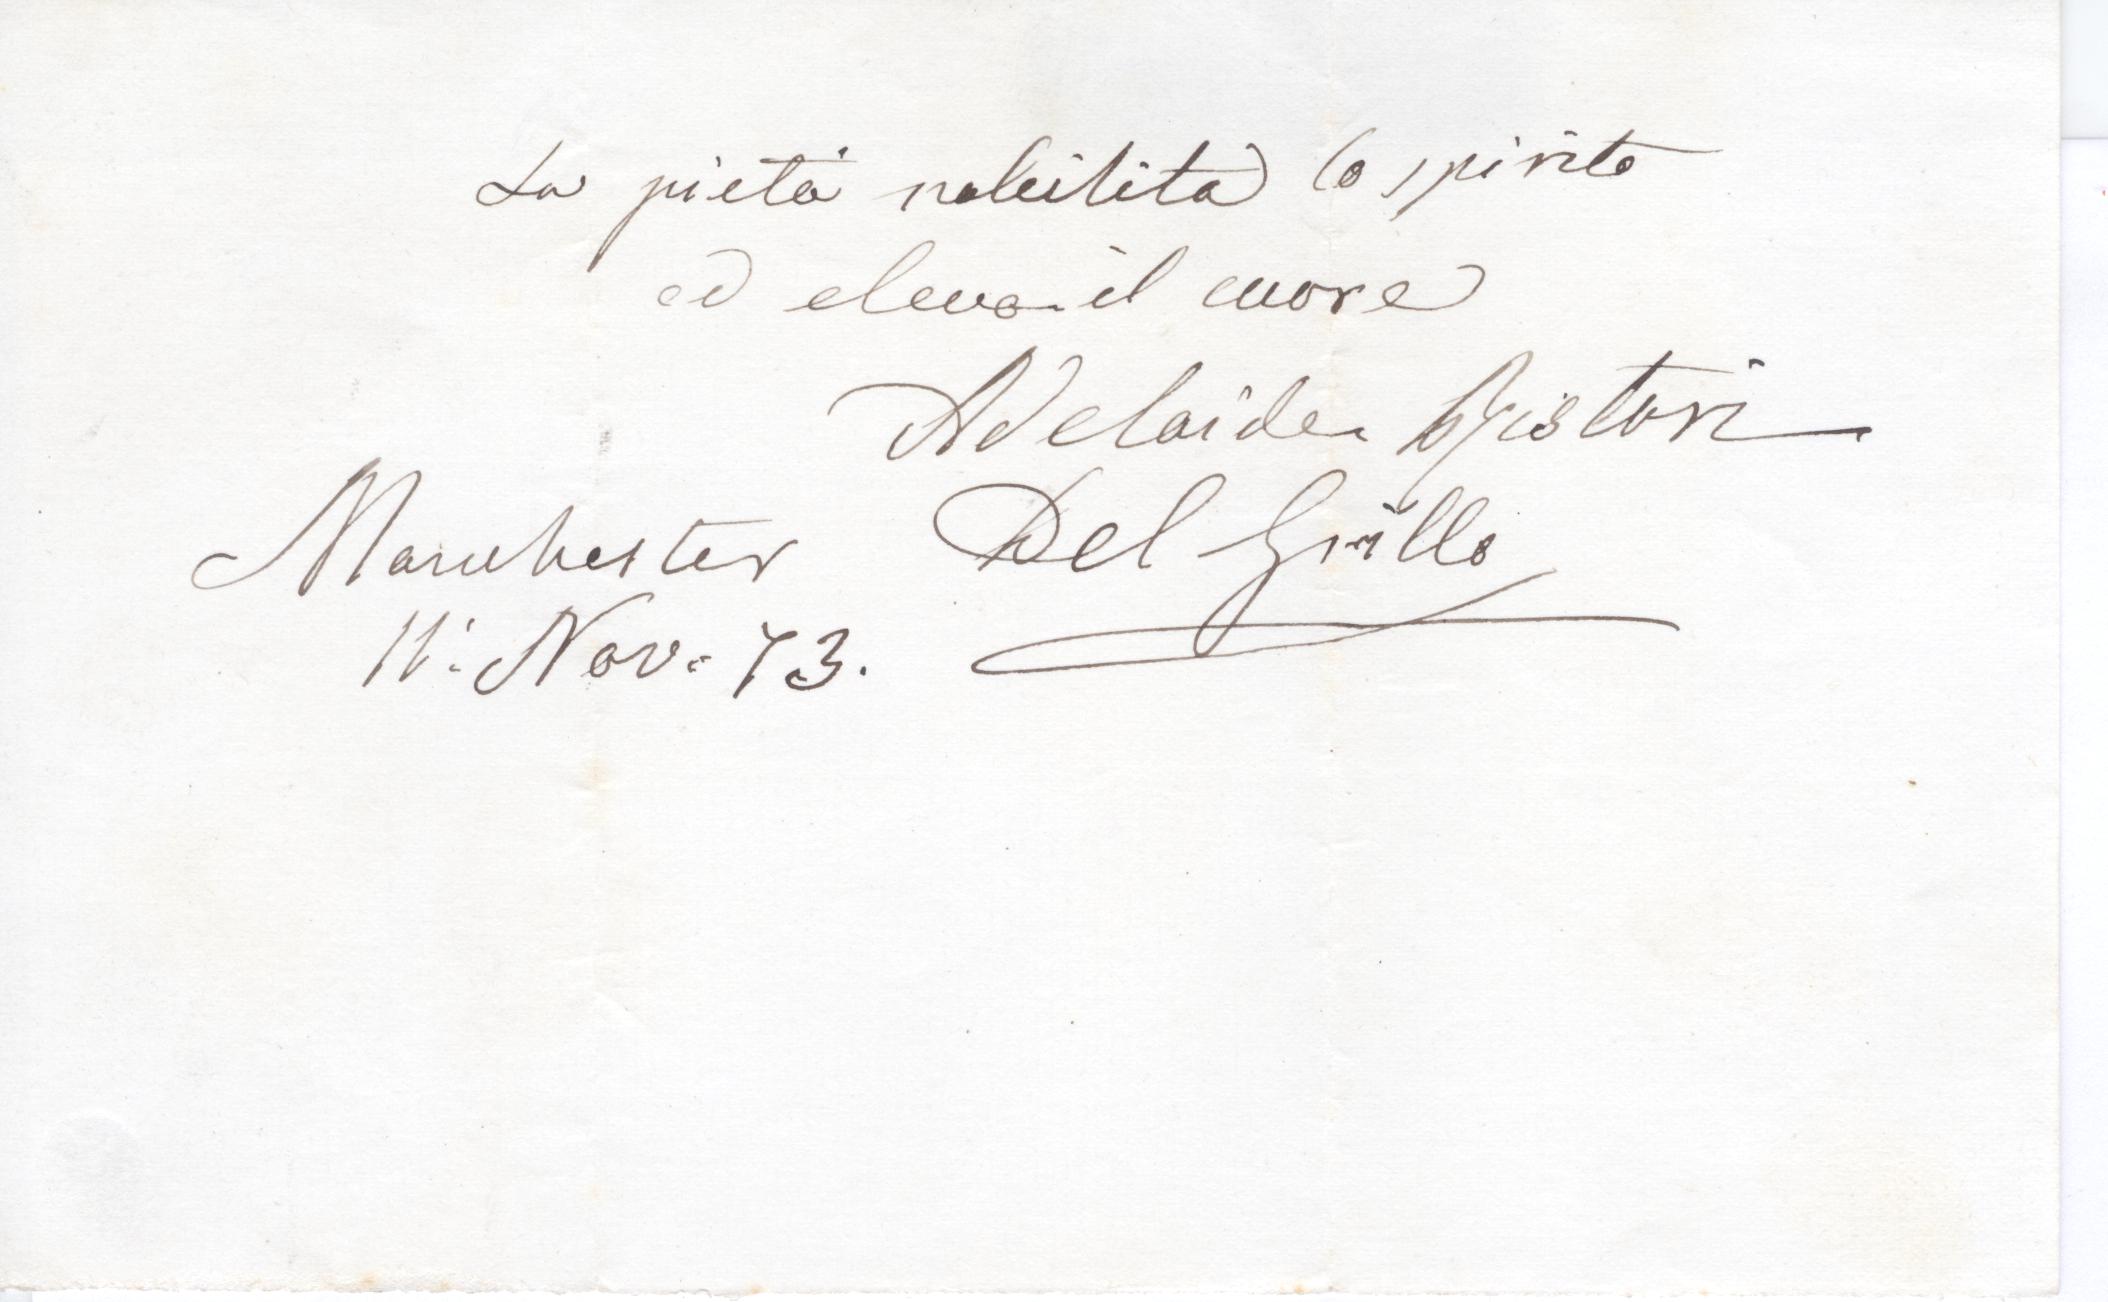 La pietà nobilita lo spirito
ed eleva il cuore
Adelaide Ristori
Manchester Del Grillo
11: Nov: 73.